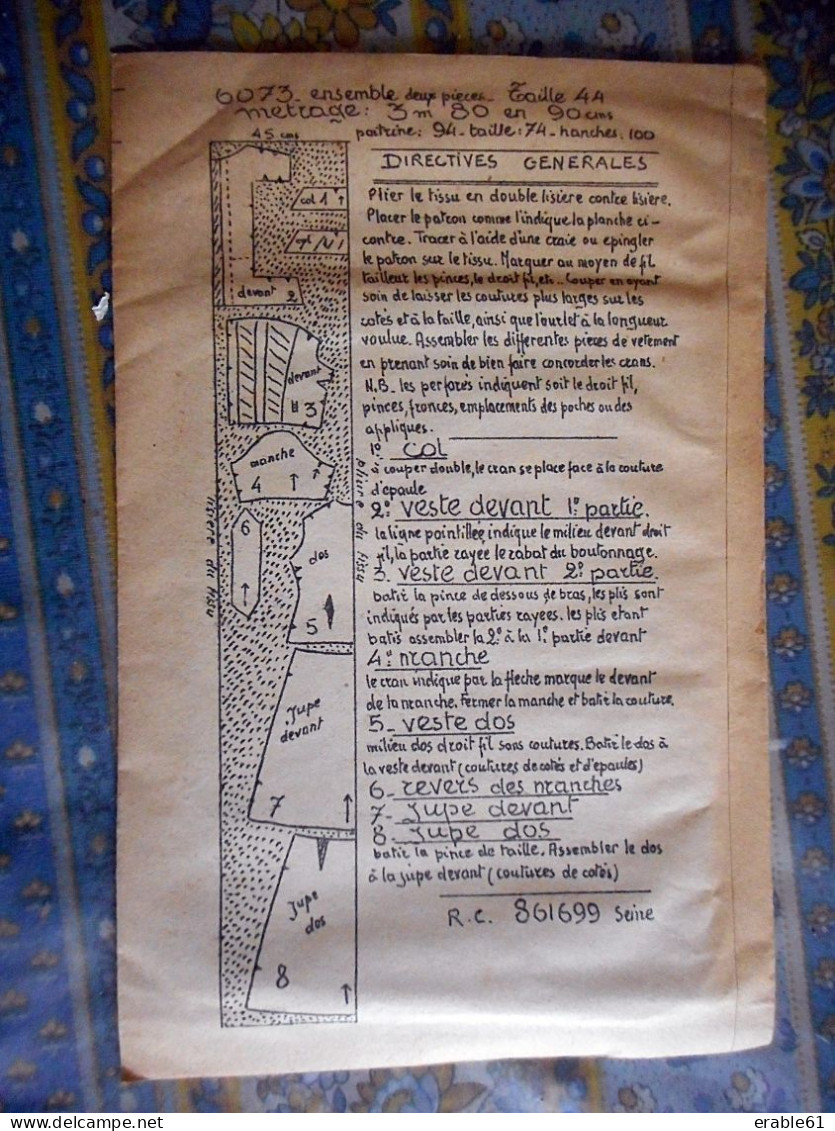 6073 - ensemble deux pieces - Taille 44
metrage : 3 m 80 en 90 cms
poitrine : 94 - taille : 74 - hanches : 100
45 cms
DIRECTIVES GENERALES
Plier le tissu en double lisiere contre lisiere.
Placer le patron comme l'indique la planche ci-
contre. Tracer à l'aide d'une craie ou epingler
le patron sur le tissu. Marquer au moyen de fil
tailleur les pinces, le droit fil, etc... Couper en ayant
soin de laisser les coutures plus larges sur les
cotés et à la taille, ainsi que l'ourlet à la longueur
voulue. Assembler les differentes pieces de vetement
en prenant soin de bien faire concorder les crans.
N.B. les perforés indiquent soit le droit fil,
pinces, fronces, emplacements des poches ou des
appliques.
1º COL
à couper double, le cran se place face à la couture
d'epaule
2º veste devant 1º partie.
la ligne pointillée indique le milieu devant droit
fil, la partie rayée le rabat du boutonnage.
3. veste devant 2º partie.
batir la pince de dessous de bras, les plis sont
indiqués par les parties rayees. les plis etant
batis assembler la 2º à la 1º partie devant
4º manche
le cran indique par la fleche marque le devant
de la manche. Fermer la manche et batir la couture.
5 - veste dos
milieu dos droit fil sans coutures. Batir le dos à
la veste devant (coutures de cotés et d'epaules)
6 - revers des manches
7 - Jupe devant
8 - Jupe dos
batir la pince de taille. Assembler le dos
à la jupe devant (coutures de cotés)
R.C. 861699 Seine
col 1
devant 2
devant
3
manche
4
6
dos
5
lisiere du tissu
pliure du tissu
Jupe
devant
7
Jupe
dos
8
delcampe.net
erable61